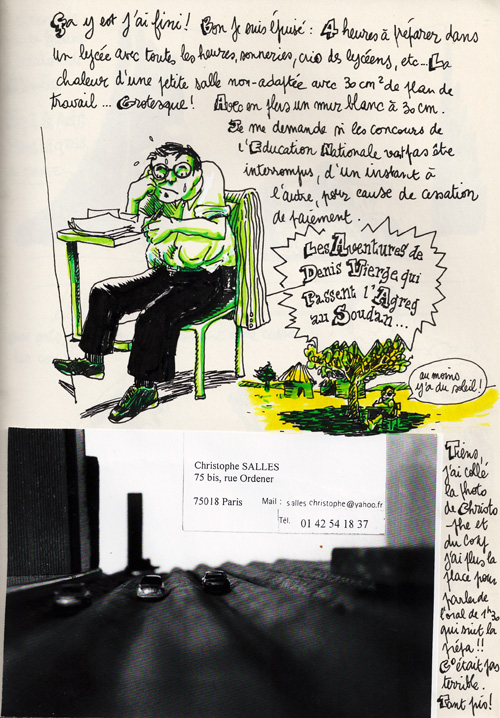 Ça y est j'ai fini! Bon Je suis épuisé: 4 heures à préparer dans
un lycée avec toutes les heures, sonneries, cris de lycéens, etc... La
chaleur d'une petite salle non-adaptée avec 30 cm² de plan de
travail... Grotesque! Avec en plus un mur blanc à 30 cm.
Je me demande si les concours de
l'Education Nationale vat pas être
interrompus, d'un instant à
l'autre, pour cause de cessation
de paiement.
Les Aventures de
Denis Vierge qui
Passent l'Agreg
au Soudan...
au moins
y'a du soleil!
Christophe SALLES
75 bis, rue Ordener
75018 Paris Mail: salles christophe@yahoo.fr
Tél. 01 42 54 18 37
Tiens,
j'ai collé
la photo
de Christo-
phe et
du coup
j'ai plus la
place pour
parler de
l'oral de 1h30
qui suit la
prépa!!
C'était pas
terrible.
Tant pis!